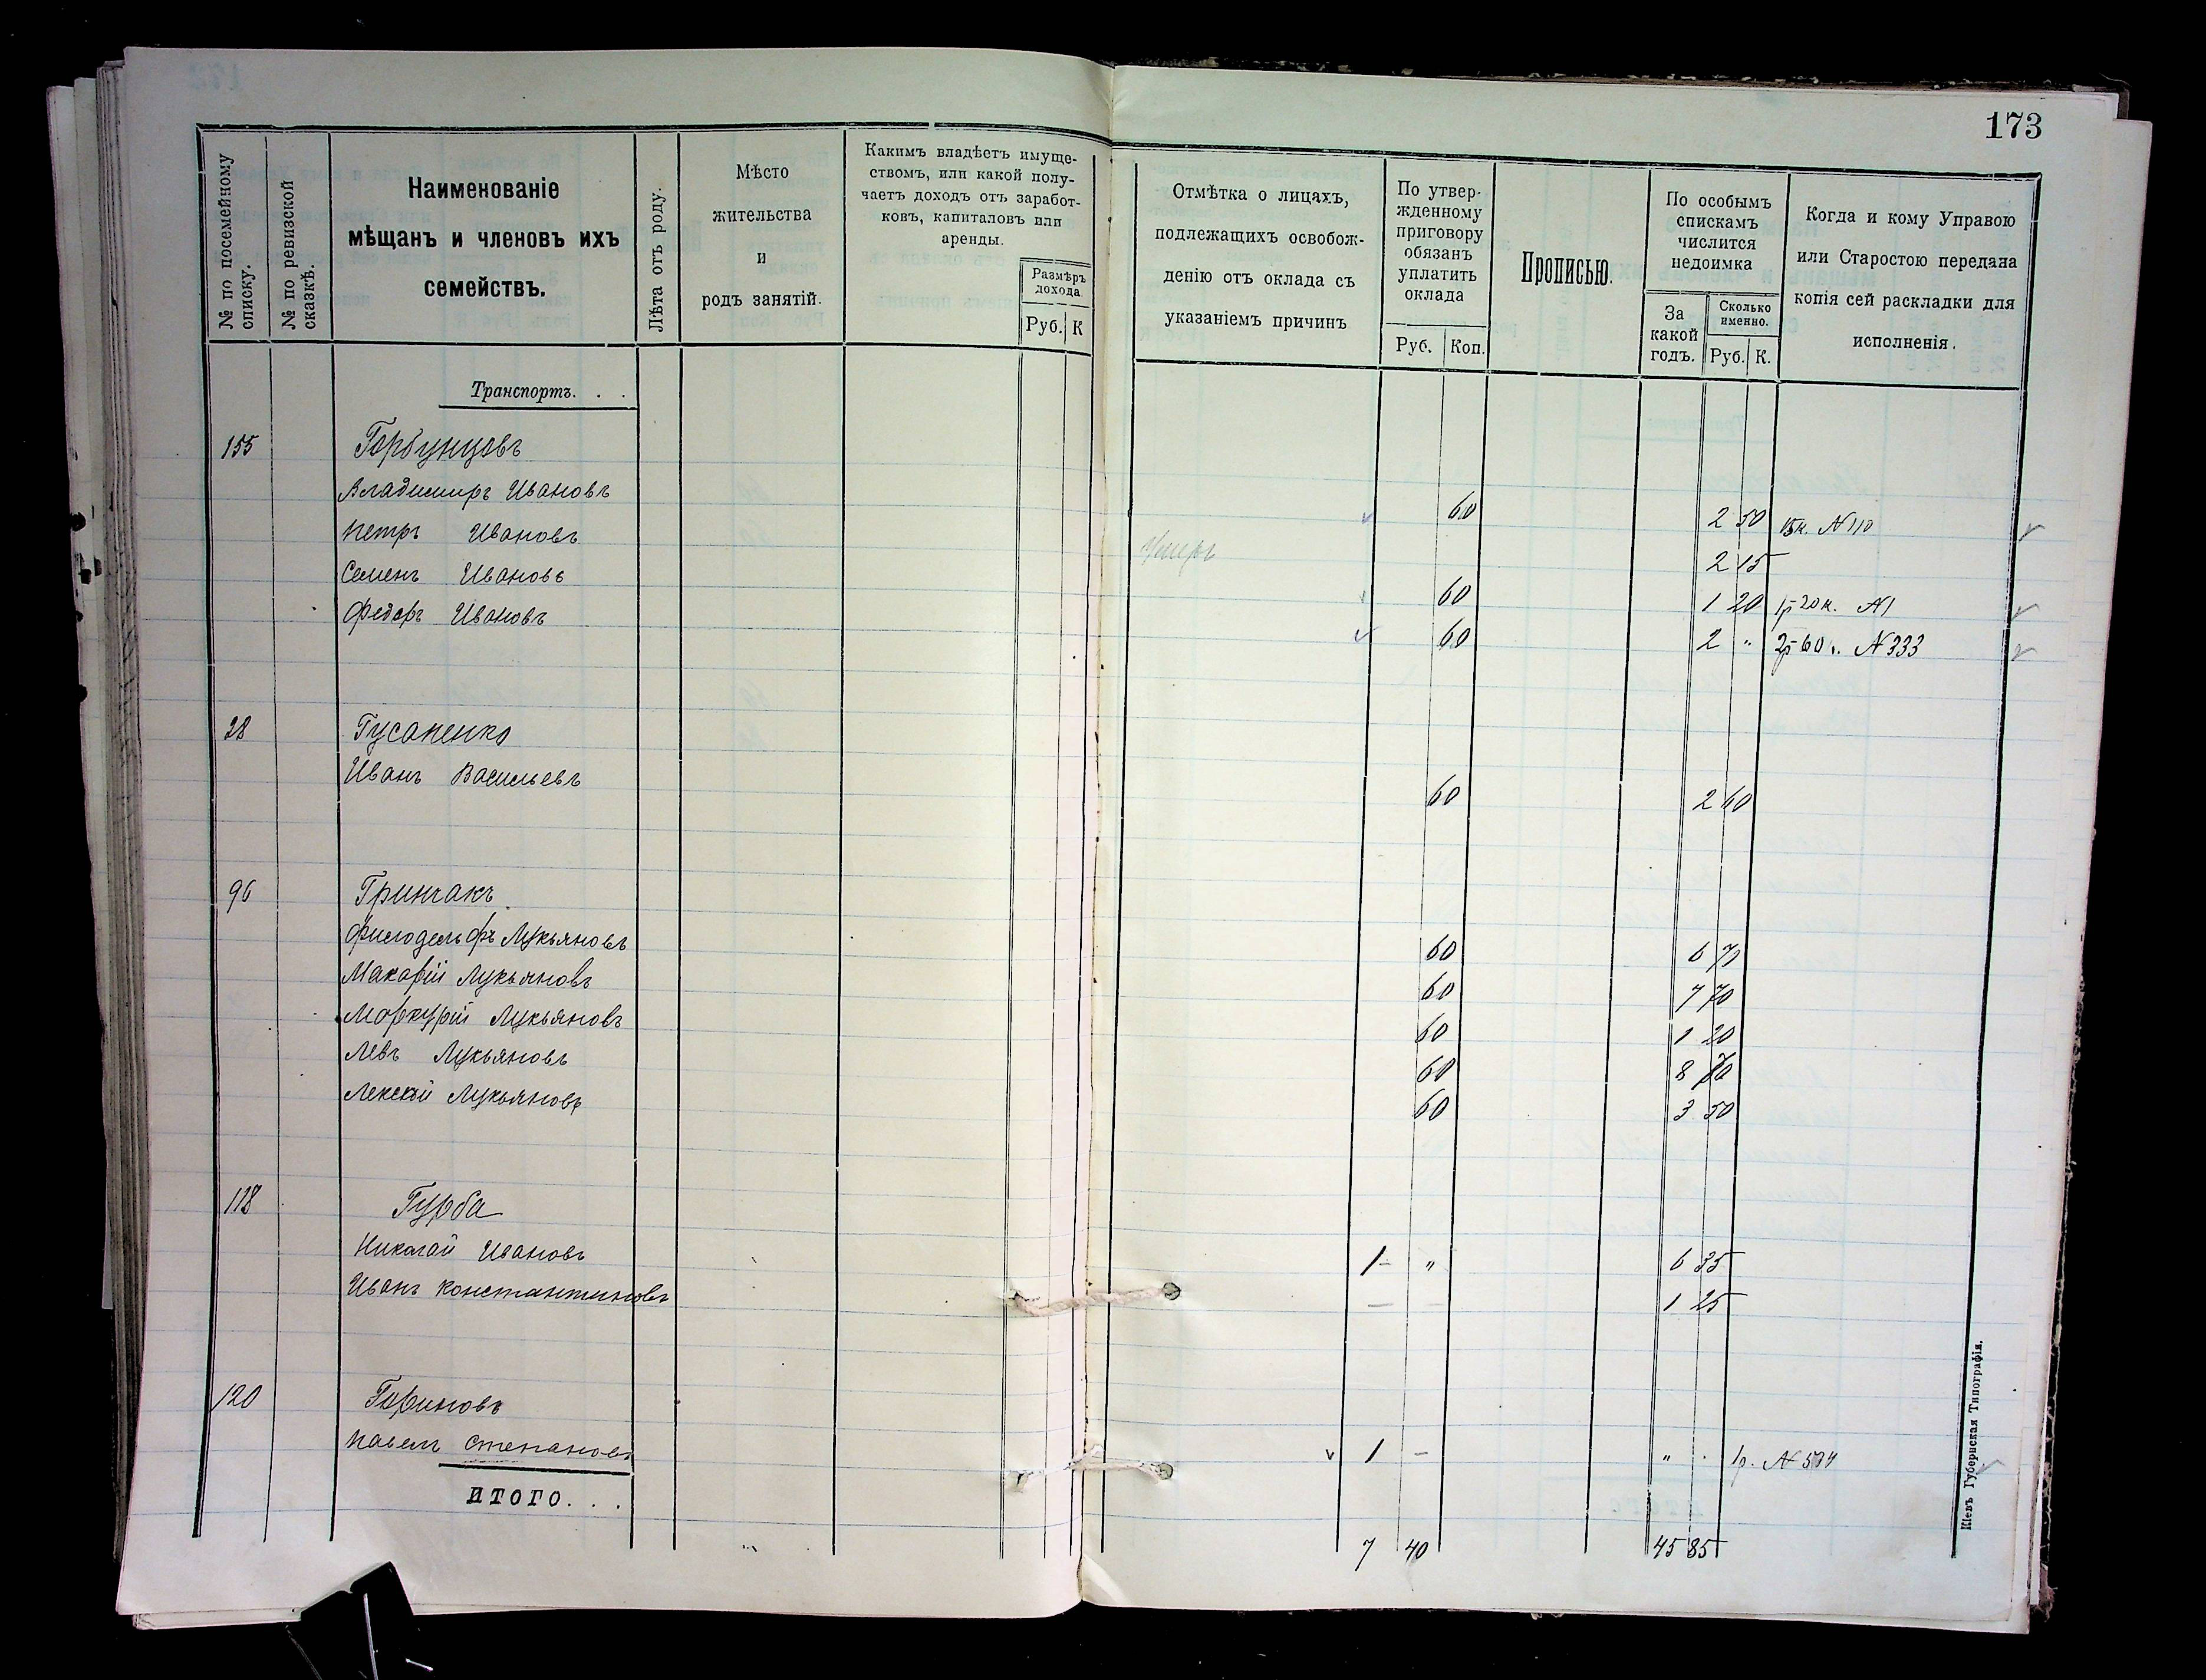 173
№ по посемейному списку.
№ по ревизской сказкѣ.
Наименованіе
мѣщанъ и членовъ ихъ
семействъ.
Лѣта отъ роду.
Мѣсто
жительства
и
родъ занятій.
Какимъ владѣетъ имуще-
ствомъ, или какой полу-
чаетъ доходъ отъ заработ-
ковъ, капиталовъ или
аренды.
Размѣръ
дохода
Руб. К
Отмѣтка о лицахъ,
подлежащихъ освобож-
денію отъ оклада съ
указаніемъ причинъ
По утвер-
жденному
приговору
обязанъ
уплатить
оклада
Руб. Коп.
Прописью.
По особымъ
спискамъ
числится
недоимка
За
какой
годъ.
Сколько
именно.
Руб. К.
Когда и кому Управою
или Старостою передана
копія сей раскладки для
исполненія.
Транспортъ. . .
155 Горбунцовъ
Владимиръ Ивановъ 60 2 50 №110
Петръ Ивановъ Умеръ 2 15
Семенъ Ивановъ 60 1 20 1р 20к. №1
Федоръ Ивановъ 60 2 " 2р 60к. №333
28 Гусаненко
Иванъ Васильевъ 60 2 60
96 Гринчакъ
Филодельфъ Лукьяновъ 60 6 70
Макарій Лукьяновъ 60 7 70
Меркурій Лукьяновъ 60 1 20
Левъ Лукьяновъ 60 8 70
Лексѣй Лукьяновъ 60 3 50
118 Гурба
Николай Ивановъ 1 " 6 35
Иванъ Константиновъ — — 1 25
120 Гориновъ
Павелъ Степановъ 1 – " . 1р. №504
ИТОГО. . . 7 40 45 85
Кіевъ Губернская Типографія.